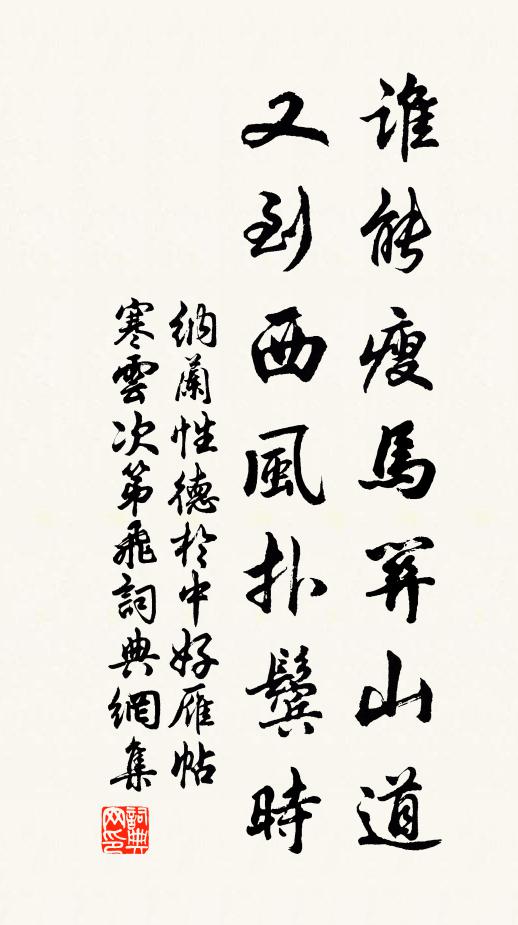 誰能瘦馬關山道
又到西風扑鬢時
納蘭性德於中好雁帖
寒雲次第飛詞典網集
詞典網印